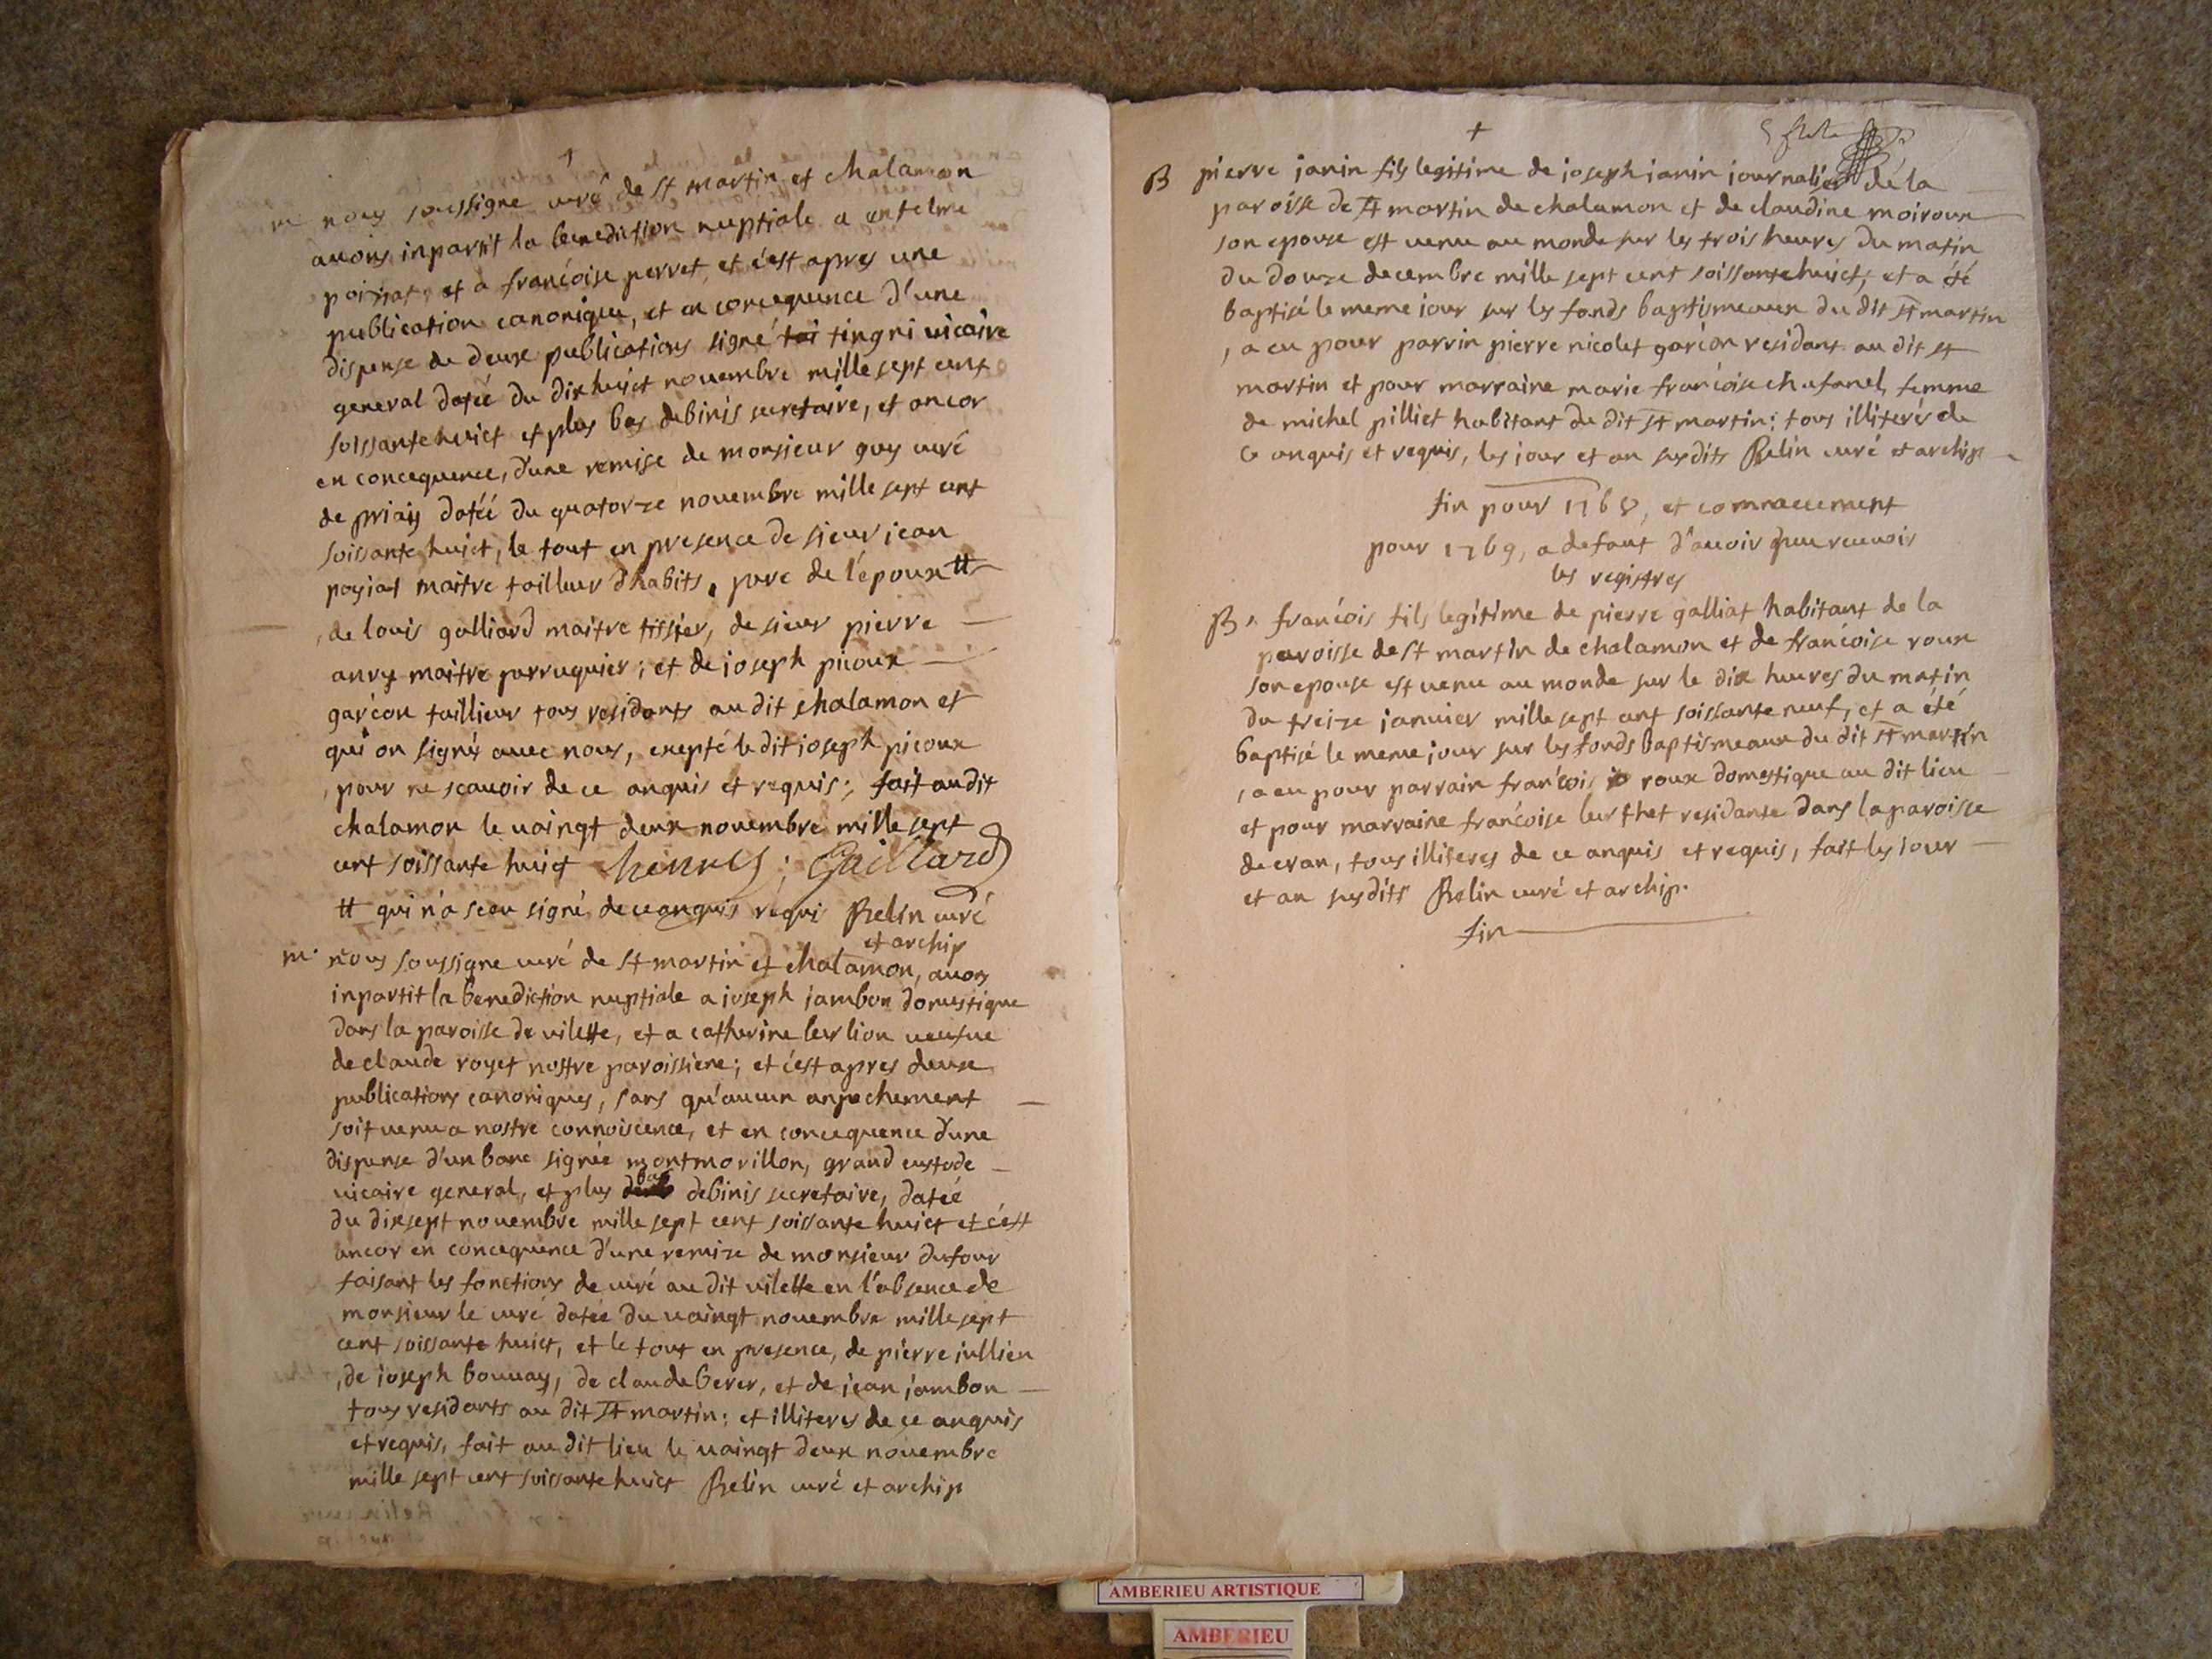 +
m nous soussigne curé de st martin et chalamon
avons inpartit la benediction nuptiale a entelme
poisiat, et a francoise perret, et c'est apres une
publication canonique, et en concequence d'une
dispense de deux publications signé tingri vicaire
general datéé du dixhuict novembre mille sept cent
soissante huict et plus bas debinis secretaire, et ancor
en concequence, d'une remise de monsieur guy curé
de priay datéé du quatorze novembre mille sept cent
soissante huict, le tout en presence de sieur jean
poysiat maitre tailleur d'habits, pere de l'epoux tt
, de louis galliard maitre tissier, de sieur pierre
anry maitre perruquier; et de joseph picoux
garcon taillieur tous residants au dit chalamon et
qui on signés avec nous, exepté le dit joseph picoux
, pour ne scavoir de ce anquis et requis; fait au dit
chalamon le vaingt deux novembre mille sept
cent soissante huict henry; Gaillard
tt qui n'a sceu signé de ce anquis requi Relin curé
et archip
m. nous soussigne curé de st martin et chalamon, avons
inpartit la benediction nuptiale a joseph jambon domestique
dans la paroisse de vilette, et a catherine leurlion veufue
de claude royet nostre paroissiene; et c'est apres deux
publications canoniques, sans qu'aucun anpechement
soit venu a nostre connoiscence, et en concequence d'une
dispense d'un banc signée montmorillon, grand custode
vicaire general, et plus bas debinis secretaire, datéé
du dixsept novembre mille sept cent soissante huict et c'est
ancor en concequence d'une remize de monsieur dufour
faisant les fonctions de curé au dit vilette en l'absence de
monsieur le curé datée du vaingt novembre mille sept
cent soissante huict, et le tout en presence, de pierre jullien
, de joseph bouvay, de claude berer, et de jean jambon
tous residants au dit st martin; et illiteres de ce anquis
et requis, fait au dit lieu le vaingt deux novembre
mille sept cent soissante huict Relin curé et archip
+
B pierre janin fils legitime de joseph janin journalier de la
paroisse de st martin de chalamon et de claudine moiroux
son epouze est venu au monde sur les trois heures du matin
du douze decembre mille sept cent soissante huict, et a été
baptisé le meme jour sur les fonds baptismeaux du dit st martin
, a eu pour parrin pierre nicolet garcon residant au dit st
martin et pour marraine marie francoise chafanel, femme
de michel pilliet habitant du dit st martin; tous illiterés de
ce anquis et requis, les jour et an susdits Relin curé et archip
fin pour 1768, et comancement
pour 1769, a defaut d'avoir peu recevoir
les registres
B. francois fils legitime de pierre galliat habitant de la
paroisse de st martin de chalamon et de francoise roux
son epouse est venu au monde sur le dix heures du matin
du treize janvier mille sept cent soissante neuf, et a été
baptisé le meme jour sur les fonds baptismeaux du dit st martin
, a eu pour parrain francois roux domestique au dit lieu
et pour marraine francoise leurthet residante dans la paroisse
de cran, tous illiteres de ce anquis et requis, fait les jour
et an susdits Relin curé et archip.
fin
AMBERIEU ARTISTIQUE
AMBERIEU